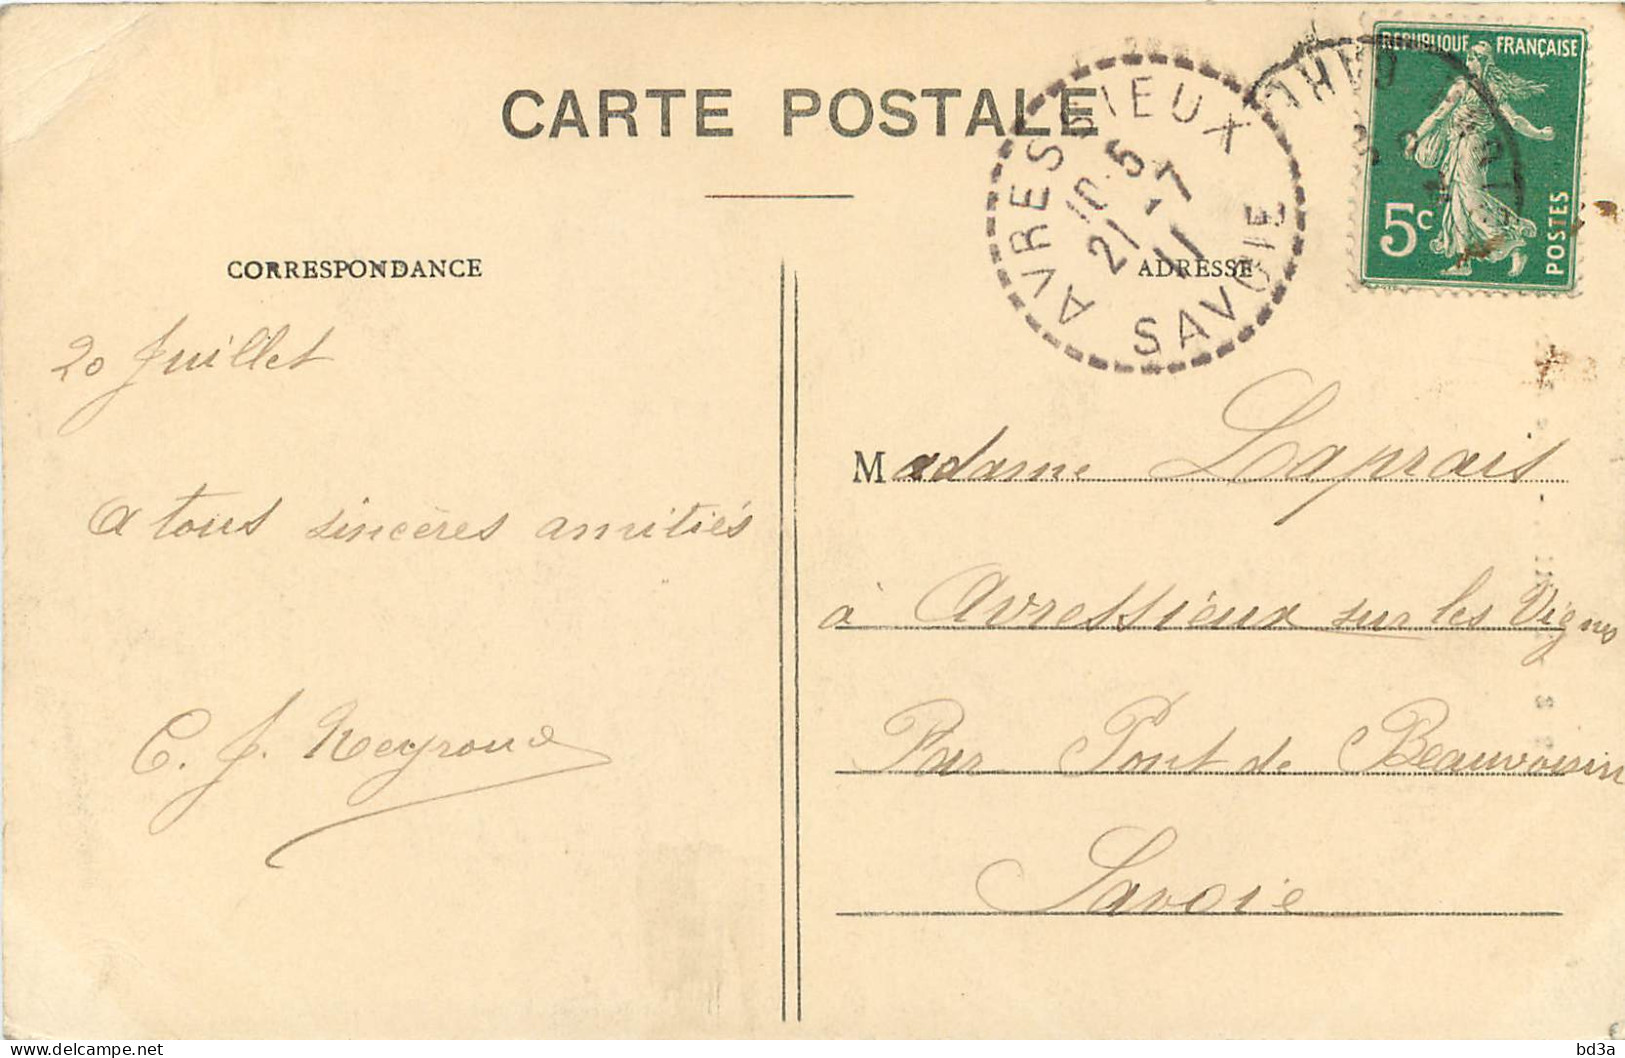 CARTE POSTALE
AVRESSIEUX
10.5
21 - 7
11
SAVOIE
REPUBLIQUE FRANÇAISE
5c
POSTES
CORRESPONDANCE
ADRESSE
20 Juillet
A tous sincères amitiés
C. J. Neyroud
Madame Laprais
à Avressieux sur les Vignes
Par Pont de Beauvoisin
Savoie
bd3a